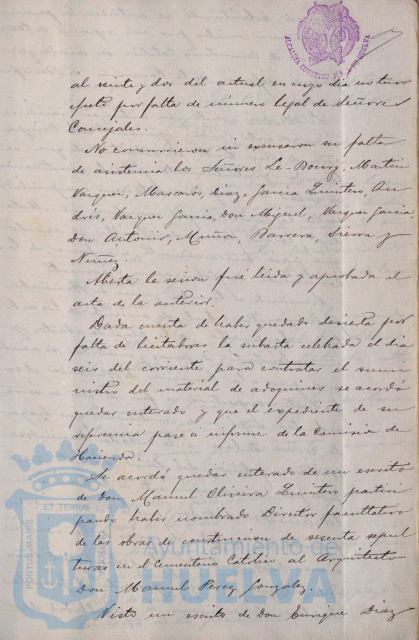 ALCALDIA CONSTITUCIONAL HUELVA
al veinte y dos del actual en cuyo dia no tuvo
efecto por falta de número legal de Señores
Concejales.
No concurrieron ni excusaron su falta
de asistencia los Señores Le-Bourg, Martin
Vazquez, Mascarós, Diaz, Garcia Quintero, An
drés, Vazquez Garcia, Don Miguel, Vazquez Garcia,
Don Antonio, Muñoz, Barrera, Sierra y
Nuñez.
Abierta la sesion fué leida y aprobada el
acta de la anterior.
Dada cuenta de haber quedado desierta por
falta de licitadores la subasta celebrada el dia
seis del corriente para contratar el sumi
nistro del material de adoquines se acordó
quedar enterado y que el expediente de su
referencia pase a informe de la Comision de
Hacienda.
Se acordó quedar enterado de un escrito
de Don Manuel Oliveira Quintero partici
pando haber nombrado Director facultativo
de las obras de construccion de sesenta sepul
turas en el Cementerio Católico al Arquitecto
Don Manuel Perez Gonzalez.
Visto un escrito de Don Enrique Diaz
PORTUS MARIS ET TERRAE
Ayuntamiento de
HUELVA